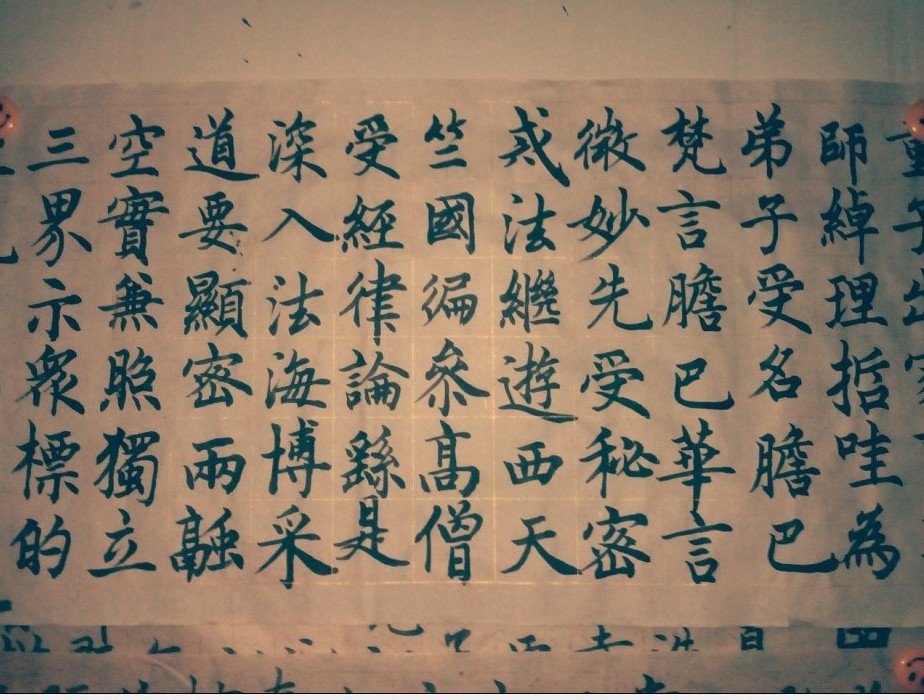 師綽理哲哇為
弟子受名膽巴
梵言膽巴華言
微妙先受秘密
戒法繼遊西天
竺國徧參高僧
受經律論繇是
深入法海博采
道要顯密兩融
空實兼照獨立
三界示眾標的